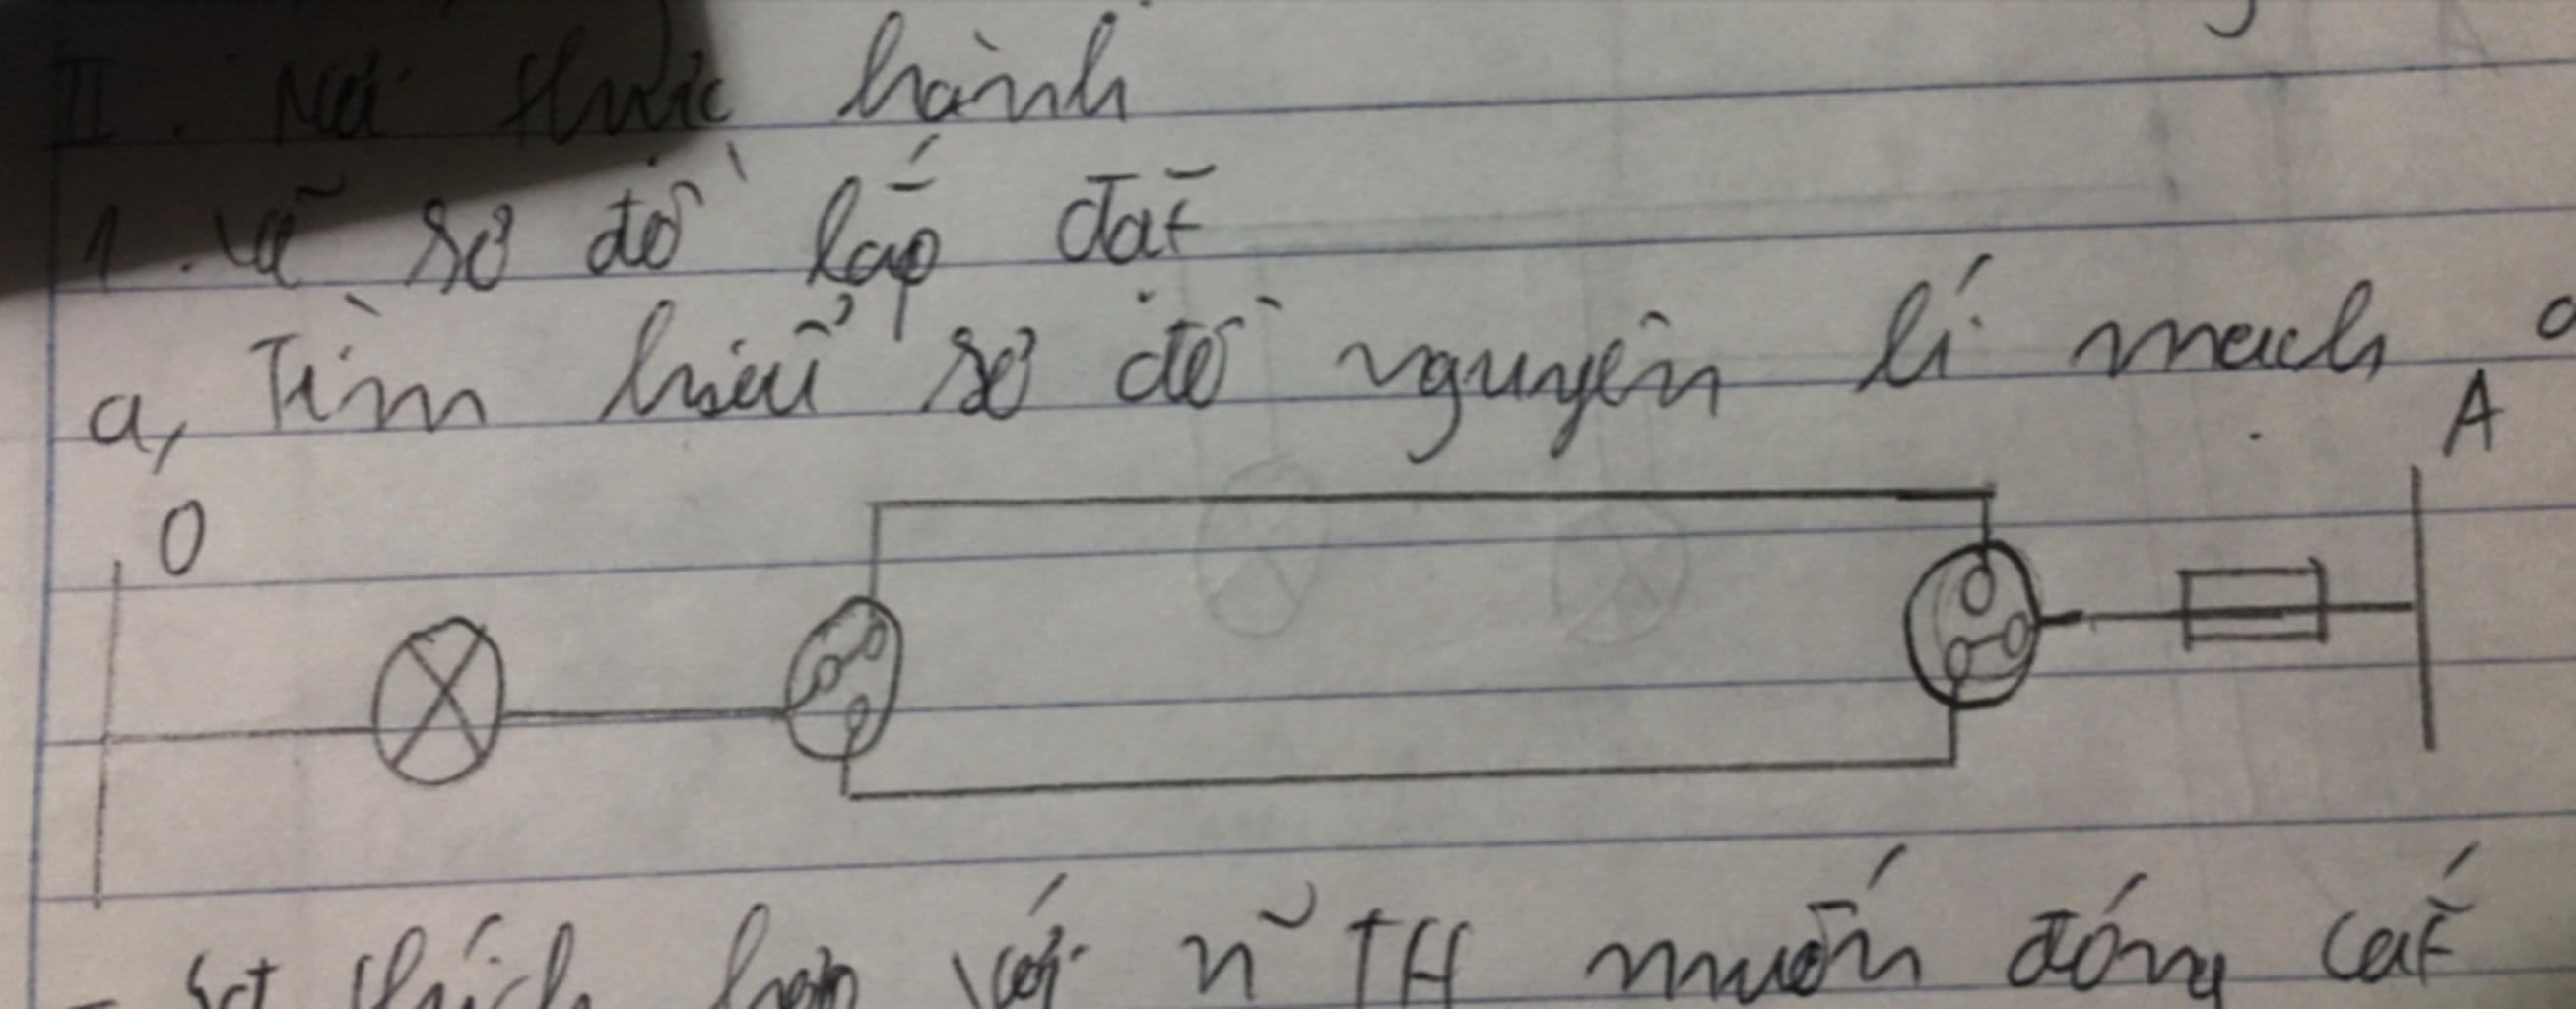 II. Nd thực hành
1. Vẽ sơ đồ lắp đặt
a, Tìm hiểu sơ đồ nguyên lí mạch
A
O
- thích hợp với n~ TH muốn đóng cắt